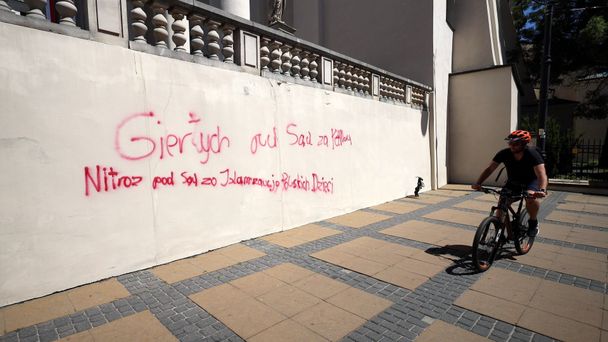 Giertych pod Sąd za
Nitroz pod Sąd za Islamizację Polskich Dzieci